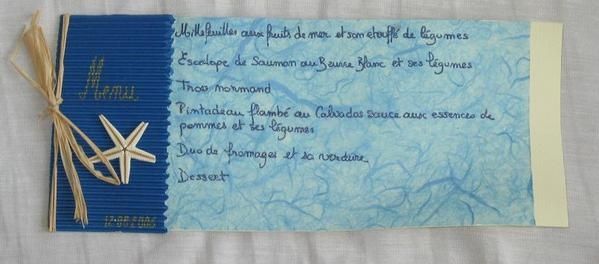 Menu
12.08.2006
Millefeuilles aux fruits de mer et son étouffé de légumes
Escalope de Saumon au Beurre Blanc et ses légumes
Trou normand
Pintadeau flambé au Calvados sauce aux essences de
pommes et ses légumes
Duo de fromages et sa verdure
Dessert